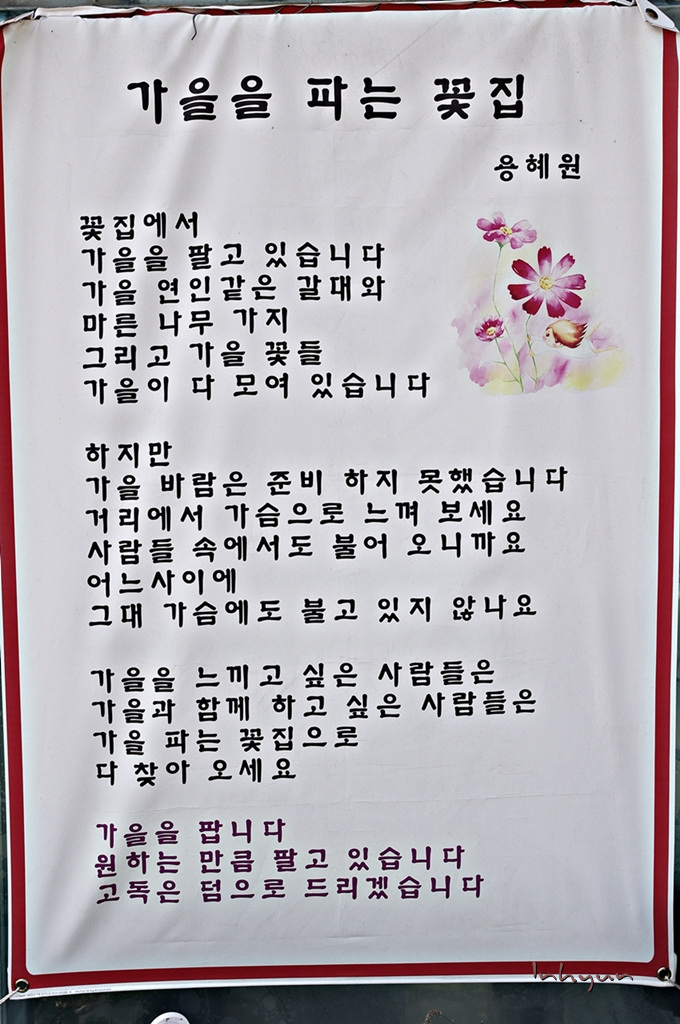 가을을 파는 꽃집
용혜원
꽃집에서
가을을 팔고 있습니다
가을 연인같은 갈대와
마른 나무 가지
그리고 가을 꽃들
가을이 다 모여 있습니다
하지만
가을 바람은 준비 하지 못했습니다
거리에서 가슴으로 느껴 보세요
사람들 속에서도 불어 오니까요
어느사이에
그대 가슴에도 불고 있지 않나요
가을을 느끼고 싶은 사람들은
가을과 함께 하고 싶은 사람들은
가을 파는 꽃집으로
다 찾아 오세요
가을을 팝니다
원하는 만큼 팔고 있습니다
고독은 덤으로 드리겠습니다
Inhyun